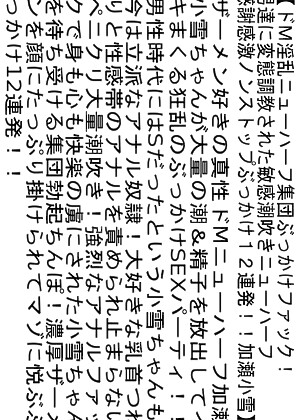 【ドM淫乱ニューハーフ集団ぶっかけファック!
男達に変態調教された敏感潮吹きニューハーフ
感謝感激ノンストップぶっかけ12連発!!加瀬小雪】
ザーメン好きの真性ドMニューハーフ加瀬
小雪ちゃんが大量の潮&精子を放出してイ
キまくる狂乱のぶっかけSEXパーティ!!
男性時代にはSだったという小雪ちゃんも
今は立派なアナル奴隷!大好きな乳首つね
りと性感帯のアナルを責められ止まらない
ペニクリ大量潮吹き!強烈なアナルファッ
クで身も心も快楽の虜にされた小雪ちゃん
を待ち受ける集団勃起ちんぽ!濃厚ザーメ
ンを顔にたっぷり掛けられてマゾに悦ぶぶ
っかけ12連発!!